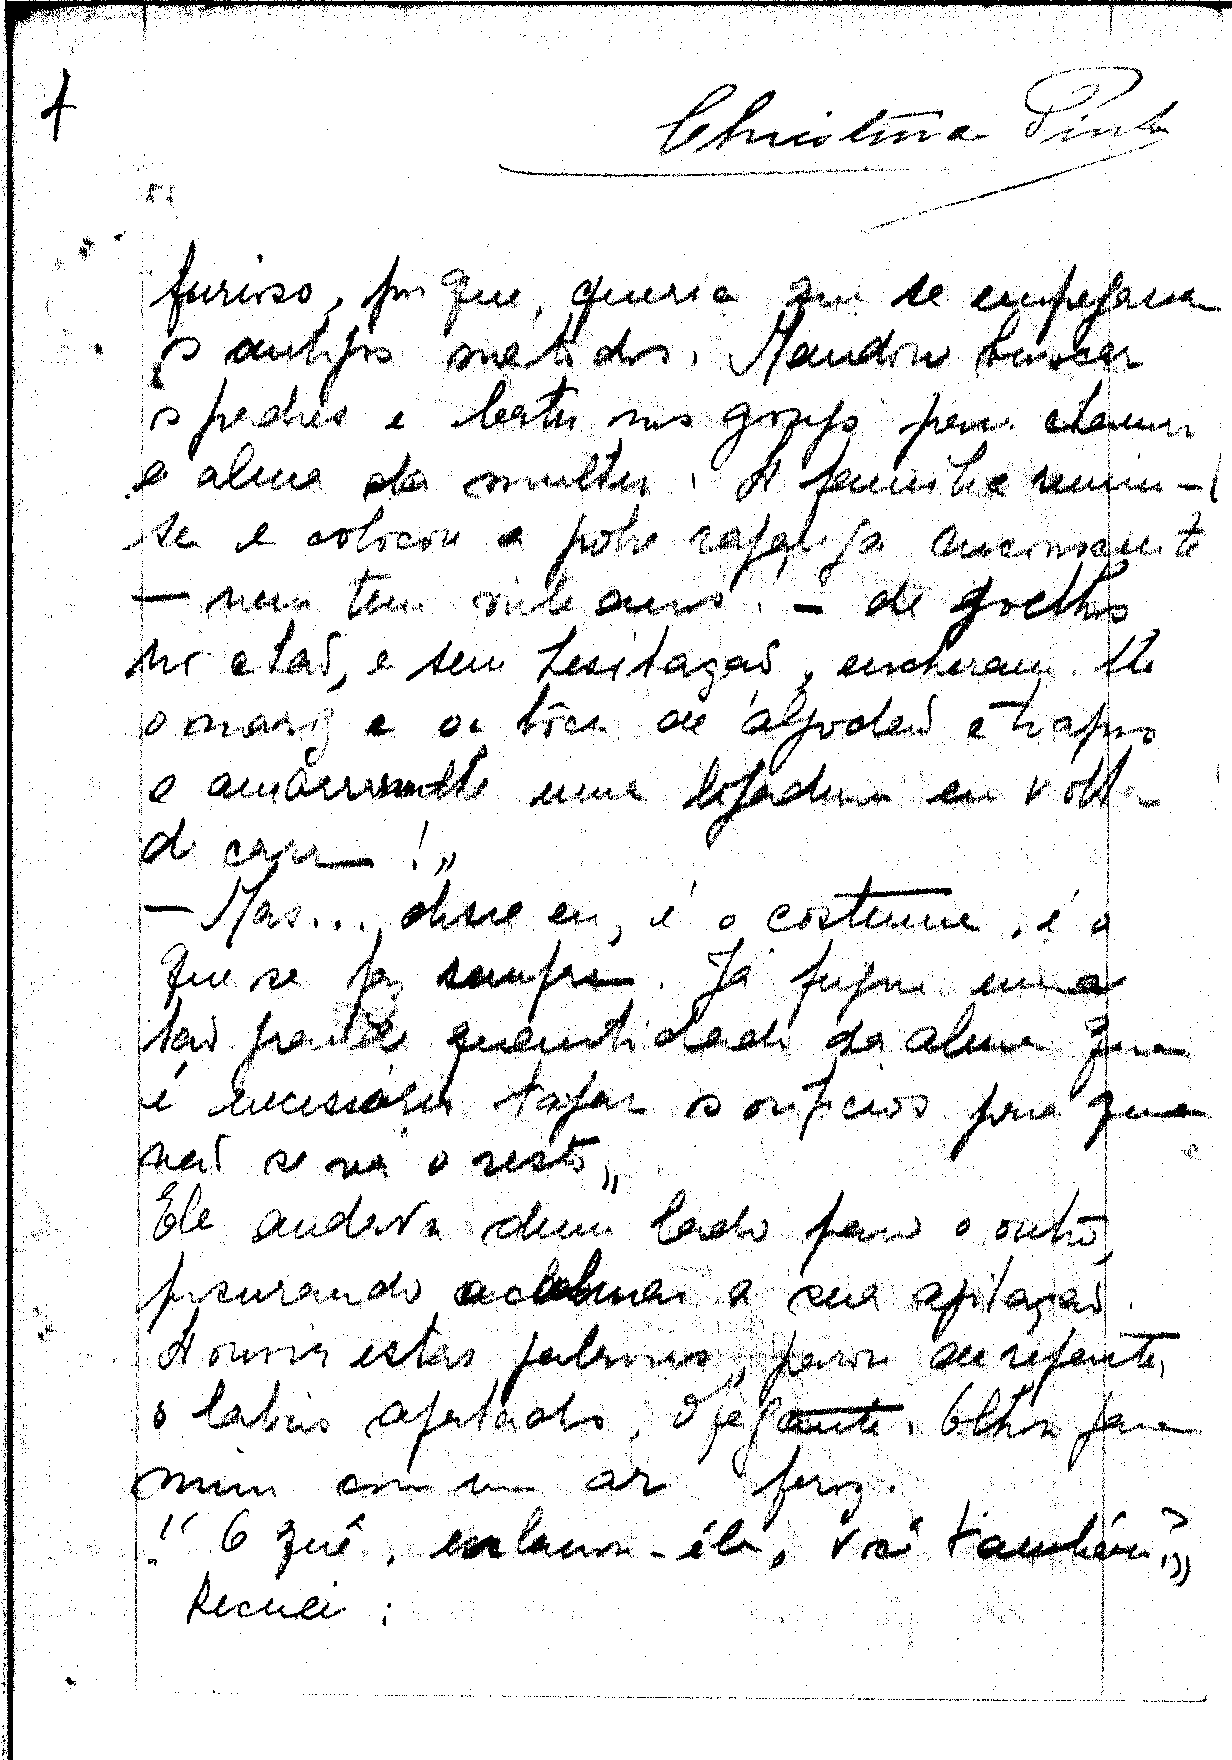 4
Christina Pinto
furioso, por que, queria que se empregasse
os antigos metodos. Mandou buscar
os padres e bater nos gongs para chamar
a alma da mulher. A familia reuniu-
se e colocou a pobre rapariga inconsciente
— nem tem vinte anos. — de joelhos
no chão, e sem hesitação, encheram lhe
o nariz e a bôca de algodão e trapos
e amarraram lhe uma ligadura em volta
da cara — !„
— Mas... disse eu, é o costume, é o
que se faz sempre. Já fugiu uma
tão grande quantidade da alma que
é necessário tapar os orificios para que
não se vá o resto„
Ele andava dum lado para o outro,
procurando acalmar a sua agitação.
A ouvir estas palavras, parou de repente,
os labios apertados, ofegante. Olhou para
mim com um ar feroz.
"O quê, exclamou-êle, você também?„
Recuei :